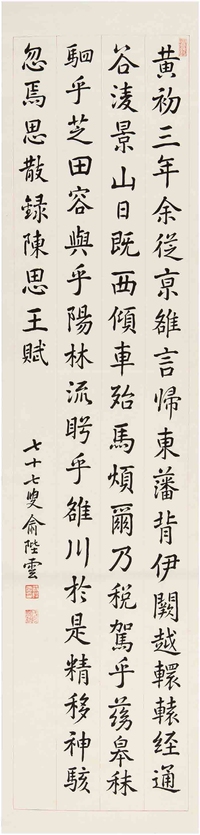 黄初三年余從京雒言歸東藩背伊闕越轘轅經通
谷淩景山日既西傾車殆馬煩爾乃稅駕乎蘅皋秣
駟乎芝田容與乎陽林流眄乎雒川於是精移神駭
忽焉思散錄陳思王賦
七十七叟俞陛雲